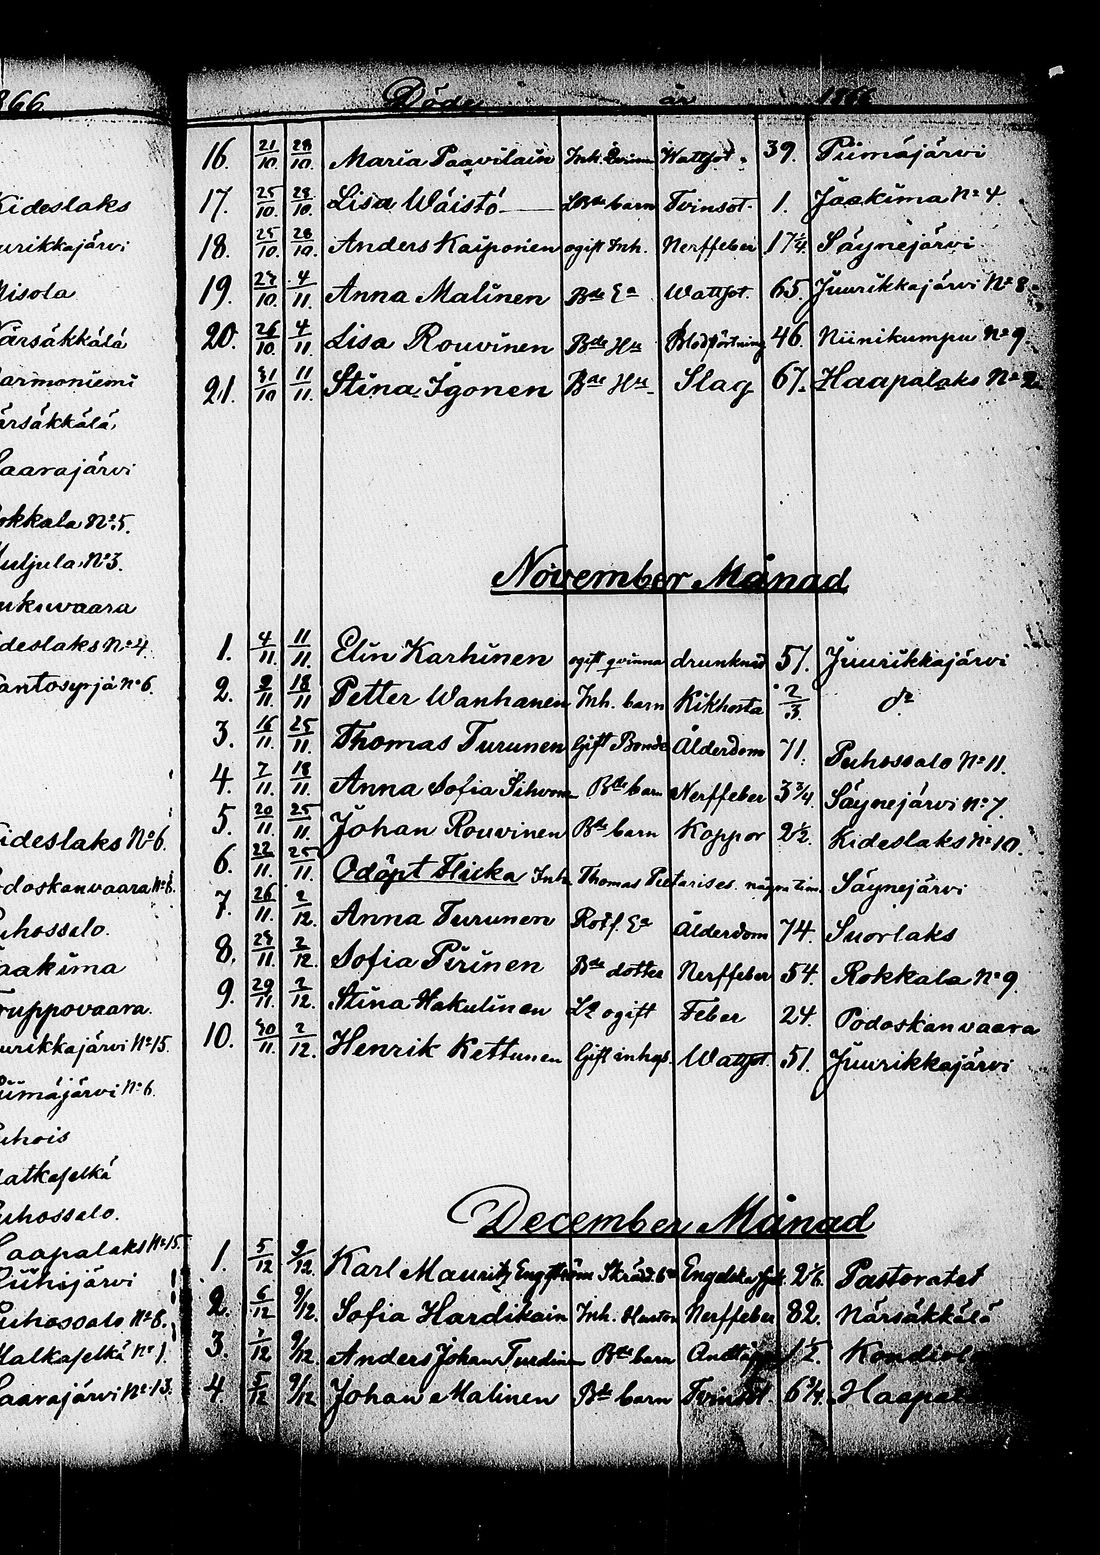 866
Kideslaks
Juurikkajärvi
Misola
Närsäkkälä
Harmoniemi
Närsäkkälä
Saarajärvi
Rokkala No 5.
Muljula No 3.
Kideslaks No 4.
Kantosyrjä No 6.
Kideslaks No 6.
Podoskanvaara No 8.
Puhossalo.
Jaakima
Ruppovaara.
Juurikkajärvi No 15.
Piimäjärvi No 6.
Puhois
Matkaselkä
Puhossalo.
Haapalaks No 15.
Riihijärvi
Puhossalo No 8.
Matkaselkä No 1.
Saarajärvi No 13.
Döde år 1866
16. 21/10. 28/10. Maria Paavilain Inh. Qvinna Wattsot. 39. Piimäjärvi
17. 25/10. 28/10. Lisa Wäistö Lde barn Tvinsot. 1. Jaakima No 4
18. 25/10. 28/10. Anders Kaiponen ogift Inh. Nerffeber 17 1/4. Säynejärvi
19. 27/10. 4/11. Anna Malinen Bde Ea Wattsot. 65. Juurikkajärvi No 8.
20. 26/10. 4/11. Lisa Rouvinen Bde Hu Blodstörtning 46. Niinikumpu No 9.
21. 31/10 11/11. Stina Igonen Bde Hu Slag 67. Haapalaks No 2
November Månad
1. 4/11. 11/11. Elin Karhinen ogift qvinna drunknad 51. Juurikkajärvi
2. 9/11. 18/11 Petter Wanhanen Inh. barn Kikhosta 2/3. do
3. 16/11. 25/11. Thomas Turunen Gift Bonde Ålderdom 71. Puhossalo No 11.
4. 7/11. 18/11. Anna Sofia Sihvon Bde barn Nerffeber 3 3/4. Säynejärvi No 7.
5. 20/11 25/11. Johan Rouvinen Bde barn Koppor 2 1/2. Kideslaks No 10.
6. 22/11. 25/11. Odöpt Flicka Inh. Thomas Pietarises. några tim. Säynejärvi
7. 26/11. 2/12. Anna Turunen Rotf. Ea Ålderdom 74. Suorlaks
8. 23/11. 2/12. Sofia Pirinen Bde dotter Nerffeber 54. Rokkala No 9.
9. 29/11. 2/12. Stina Hakulinen Ld ogift Feber 24. Podoskanvaara
10. 30/11. 2/12. Henrik Kettunen Gift inhys. Wattsot 51. Juurikkajärvi
December Månad
1. 5/12 9/12. Karl Mauritz Engström Engelska sjuk 2 1/6. Pastoratet
2. 6/12 9/12. Sofia Hardikain Inh. Hustru Nerffeber 82. Närsäkkälä
3. 7/12 9/12. Anders Johan Turdin Bde barn 1 1/2.
4. 5/12 9/12. Johan Malinen Bde barn Tvinsot 6 3/4.